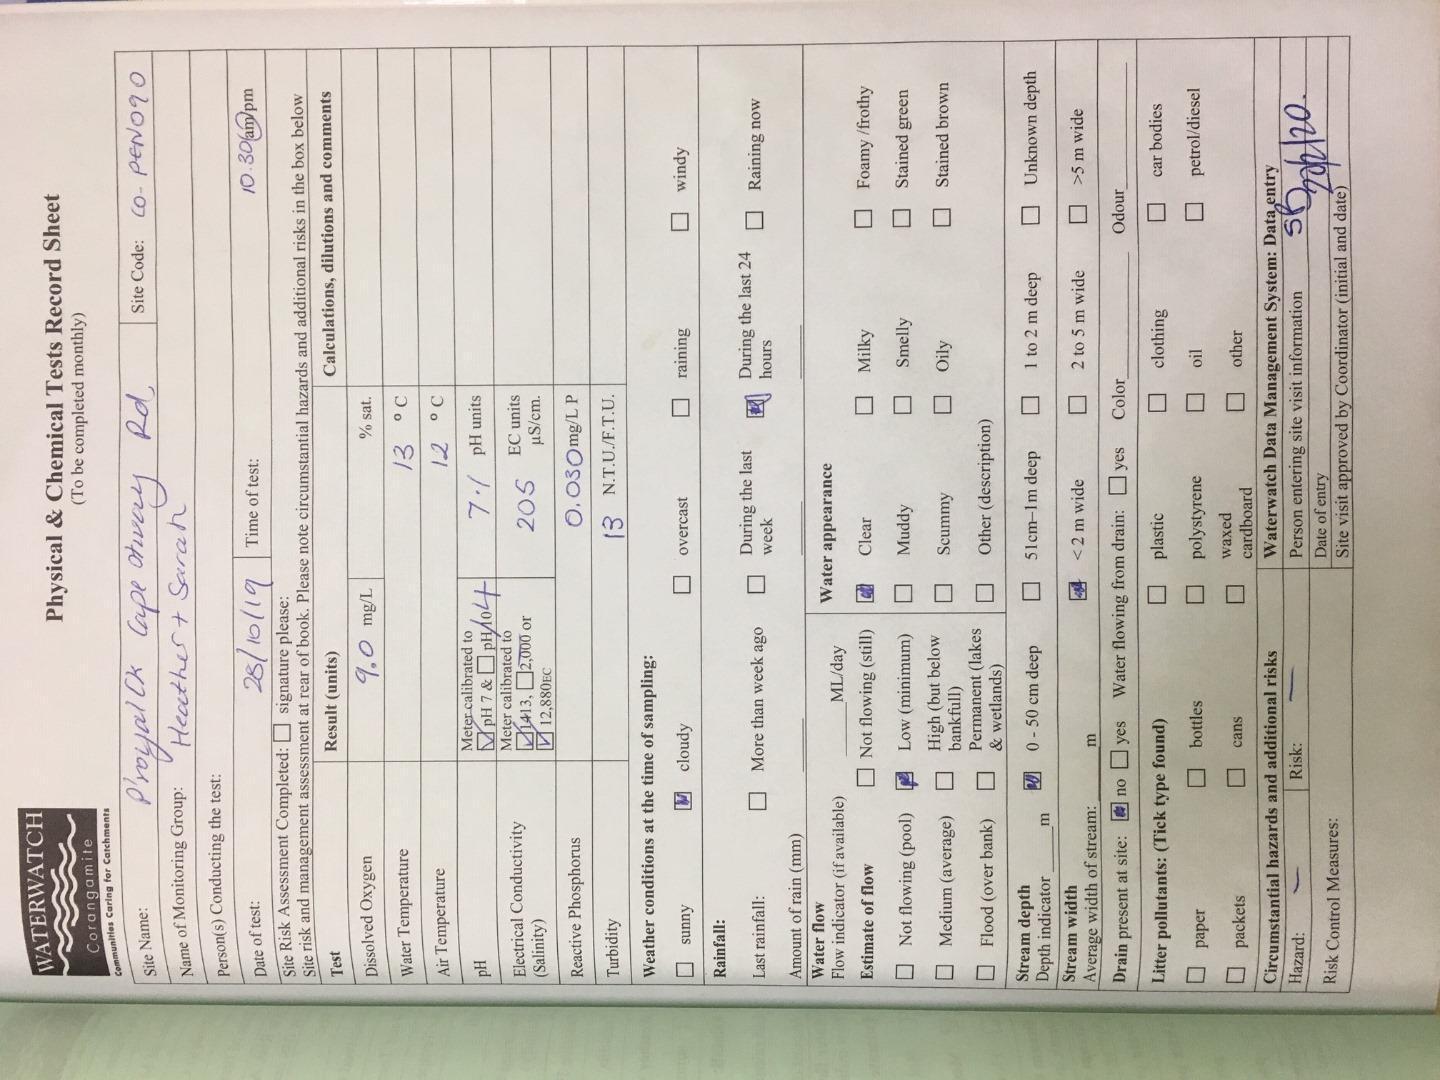 WATERWATCH
Corangamite
Communities Caring for Catchments
Physical & Chemical Tests Record Sheet
(To be completed monthly)
Site Name: P'royal Ck Cape Otway Rd, Site Code: CO-PEN090
Name of Monitoring Group: Heather + Sarah
Person(s) Conducting the test:
Date of test: 28/10/19 Time of test: 10.30 am/pm
Site Risk Assessment Completed: ☐ signature please:
Site risk and management assessment at rear of book. Please note circumstantial hazards and additional risks in the box below
Test Result (units) Calculations, dilutions and comments
Dissolved Oxygen 9.0 mg/L % sat.
Water Temperature 13 ° C
Air Temperature 12 ° C
pH Meter calibrated to ☑ pH 7 & ☐ pH 10 4 7.1 pH units
Electrical Conductivity (Salinity) Meter calibrated to ☑ 1413, ☐ 2,000 or ☑ 12,880EC 205 EC units µS/cm.
Reactive Phosphorus 0.030 mg/L P
Turbidity 13 N.T.U./F.T.U.
Weather conditions at the time of sampling:
☐ sunny ☑ cloudy ☐ overcast ☐ raining ☐ windy
Rainfall:
Last rainfall: ☐ More than week ago ☐ During the last week ☑ During the last 24 hours ☐ Raining now
Amount of rain (mm)
Water flow
Flow indicator (if available) ______ML/day
Estimate of flow ☐ Not flowing (still)
☐ Not flowing (pool) ☑ Low (minimum)
☐ Medium (average) ☐ High (but below bankfull)
☐ Flood (over bank) ☐ Permanent (lakes & wetlands)
Water appearance
☑ Clear ☐ Milky ☐ Foamy /frothy
☐ Muddy ☐ Smelly ☐ Stained green
☐ Scummy ☐ Oily ☐ Stained brown
☐ Other (description)
Stream depth
Depth indicator ______m ☑ 0 - 50 cm deep ☐ 51cm–1m deep ☐ 1 to 2 m deep ☐ Unknown depth
Stream width
Average width of stream: ______m ☑ < 2 m wide ☐ 2 to 5 m wide ☐ >5 m wide
Drain present at site: ☑ no ☐ yes Water flowing from drain: ☐ yes Color______ Odour______
Litter pollutants: (Tick type found) ☐ plastic ☐ clothing ☐ car bodies
☐ paper ☐ bottles ☐ polystyrene ☐ oil ☐ petrol/diesel
☐ packets ☐ cans ☐ waxed cardboard ☐ other
Circumstantial hazards and additional risks
Hazard: — Risk: —
Risk Control Measures:
Waterwatch Data Management System: Data entry
Person entering site visit information
Date of entry
Site visit approved by Coordinator (initial and date)